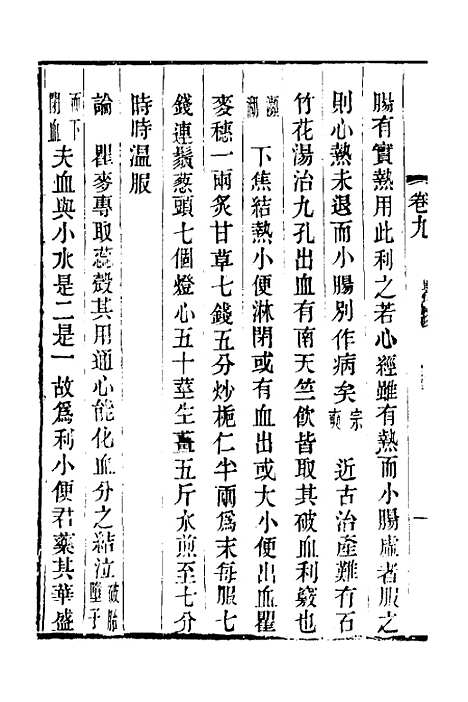 卷九
腸有實熱用此利之若心經雖有熱而小腸虛者服之
則心熱未退而小腸別作病矣宗奭 近古治產難有石
竹花湯治九孔出血有南天竺飲皆取其破血利竅也
瀕湖 下焦結熱小便淋閉或有血出或大小便出血瞿
麥穗一兩炙甘草七錢五分炒梔仁半兩為末每服七
錢連鬚蔥頭七個燈心五十莖生薑五斤水煎至七分
時時温服
論 瞿麥專取蕊殼其用通心能化血分之結泣破胎墮子
而下閉血 夫血與小水是二是一故爲利小便君藥其華盛